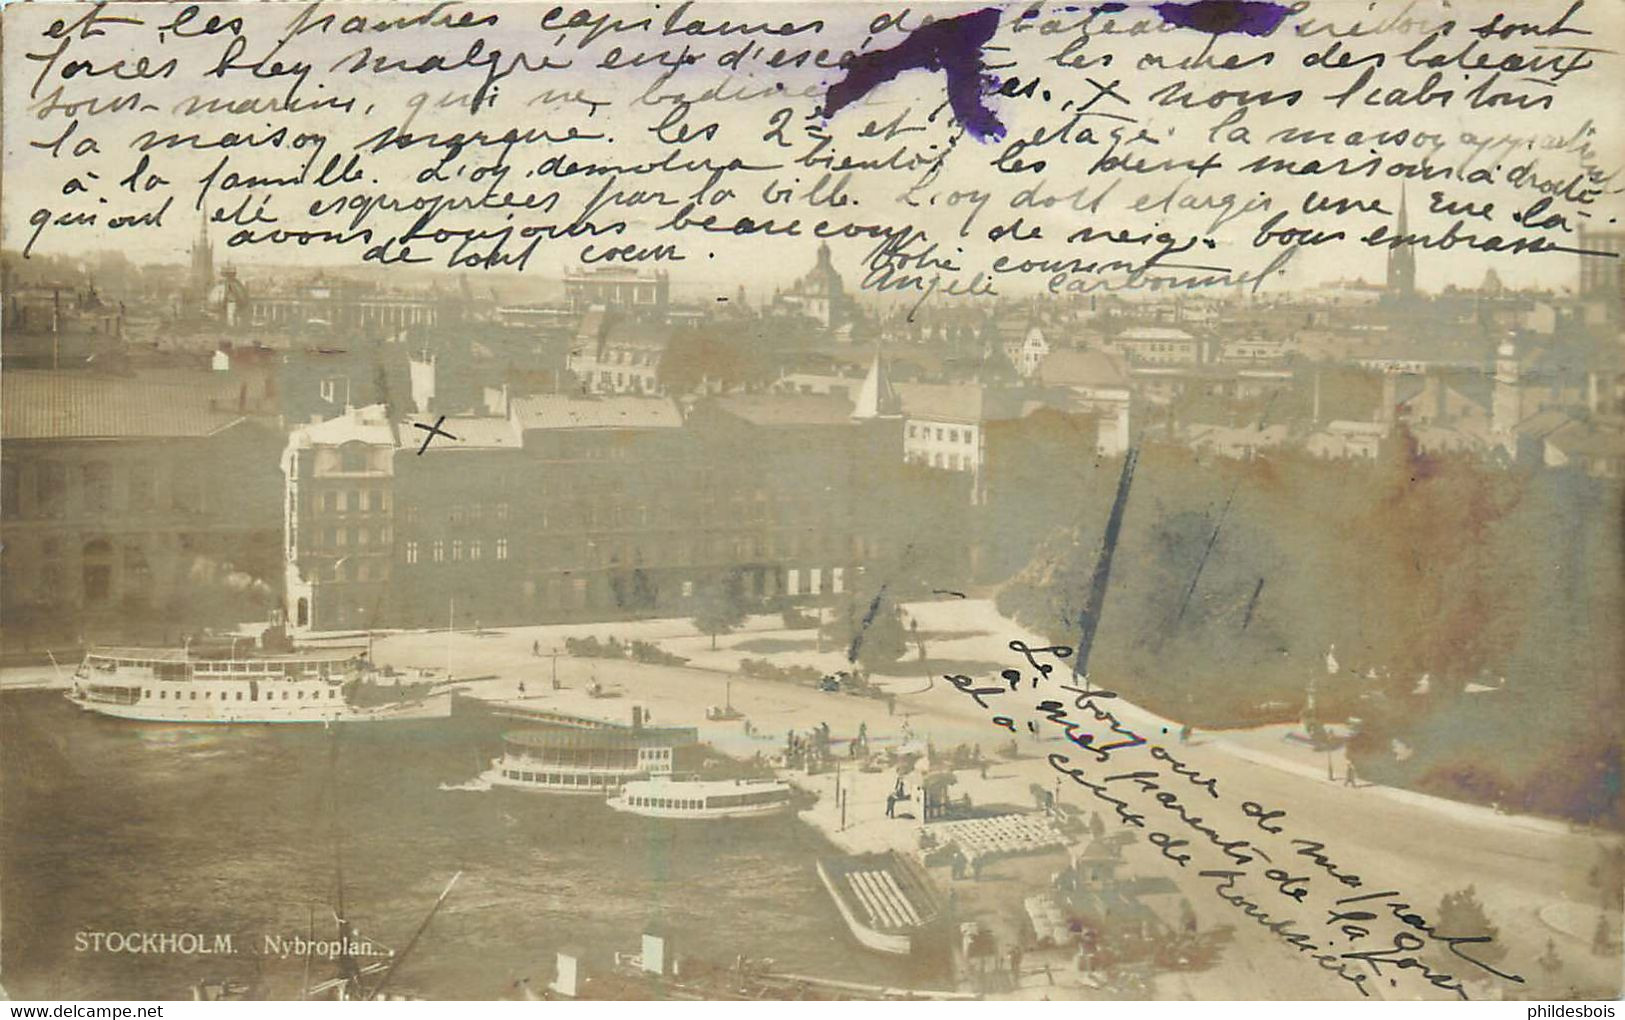 et les pauvres capitaines des bateaux Suédois sont
forcés bien malgré eux d'esca les ames des bateaux
sous-marins, qui ne badinent pas. X nous habitons
la maison marqué. les 2e et 3e etage. la maison appartient
à la famille. L'on demolira bientôt les deux maisons à droite
qui ont eté expropriées par la ville. L'on doit elargir une rue là.
avons toujours beaucoup de neige. Vous embrasse
de tout coeur. Votre cousine
Angèle Carbonnel
X
Le bonjour de ma part
à mes parents de la Gorse
et à ceux de Poussière.
STOCKHOLM. Nybroplan.
phildesbois